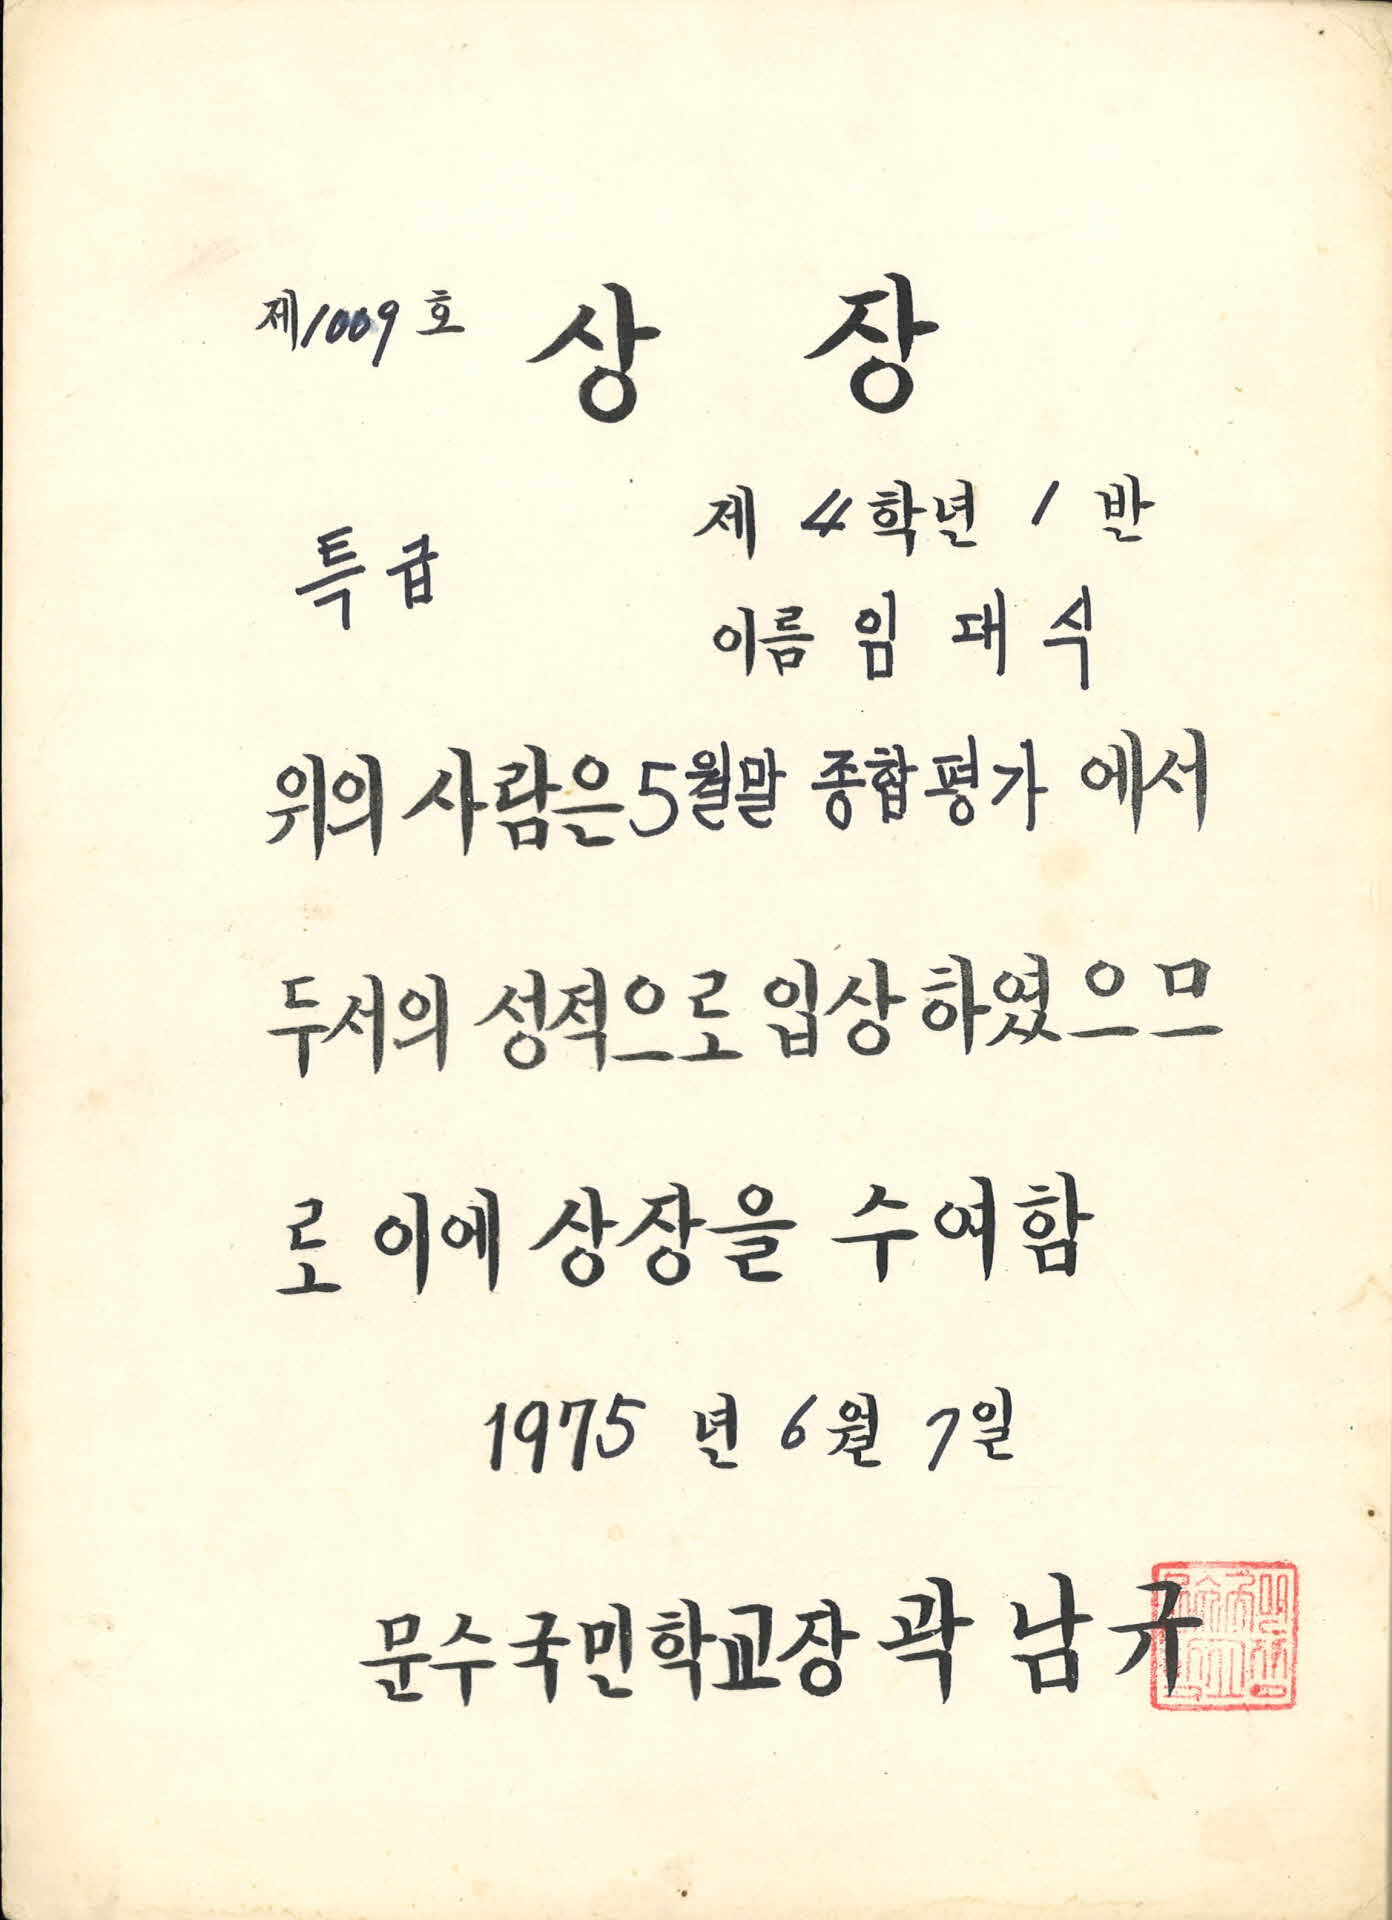 제1009호 상장
특급
제 4학년 1반
이름 임대식
위의 사람은 5월말 종합평가 에서
두서의 성적으로 입상하였으므
로 이에 상장을 수여함
1975년 6월 7일
문수국민학교장 곽남규